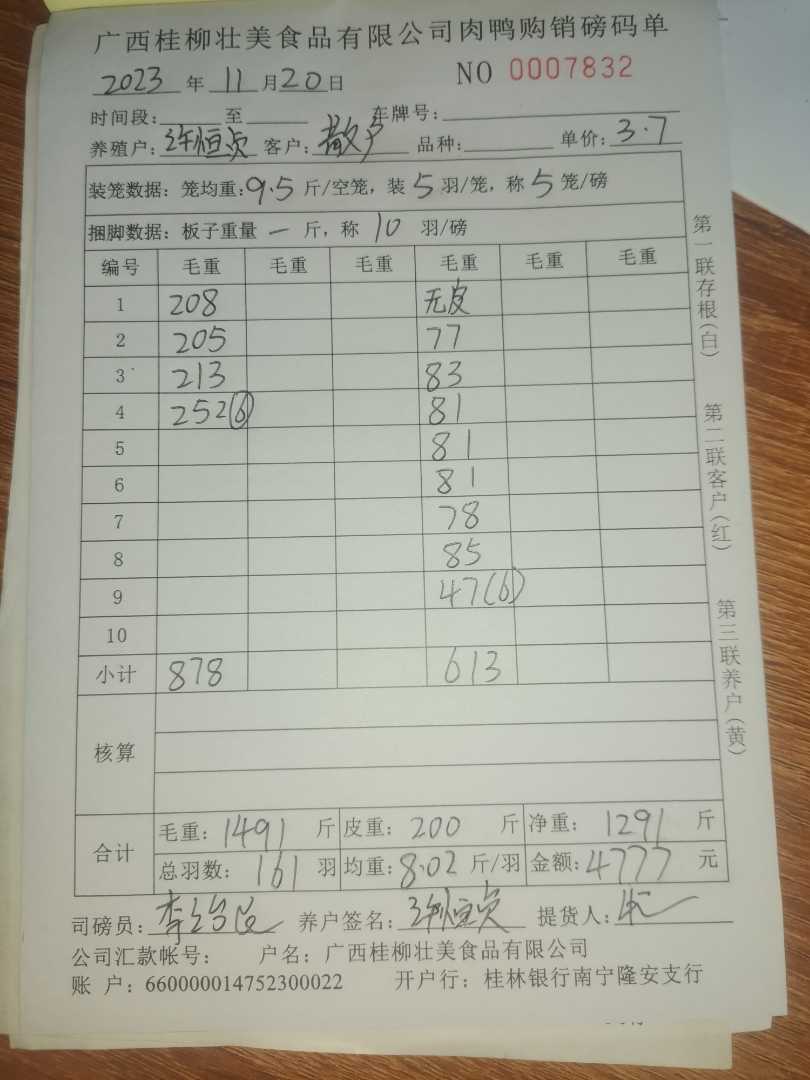 广西桂柳壮美食品有限公司肉鸭购销磅码单
2023 年 11 月 20 日 NO 0007832
时间段: 至 车牌号:
养殖户: 许恒贞 客户: 散户 品种: 单价: 3.7
装笼数据: 笼均重: 9.5 斤/空笼, 装 5 羽/笼, 称 5 笼/磅
捆脚数据: 板子重量 一 斤, 称 10 羽/磅
编号 毛重 毛重 毛重 毛重 毛重 毛重
1 208 无皮
2 205 77
3 213 83
4 252(6) 81
5 81
6 81
7 78
8 85
9 47(6)
10
小计 878 613
核算
合计
毛重: 1491 斤 皮重: 200 斤 净重: 1291 斤
总羽数: 161 羽 均重: 8.02 斤/羽 金额: 4777 元
司磅员: 养户签名: 许恒贞 提货人:
公司汇款帐号: 户名: 广西桂柳壮美食品有限公司
账 户: 660000014752300022 开户行: 桂林银行南宁隆安支行
第一联存根(白)
第二联客户(红)
第三联养户(黄)